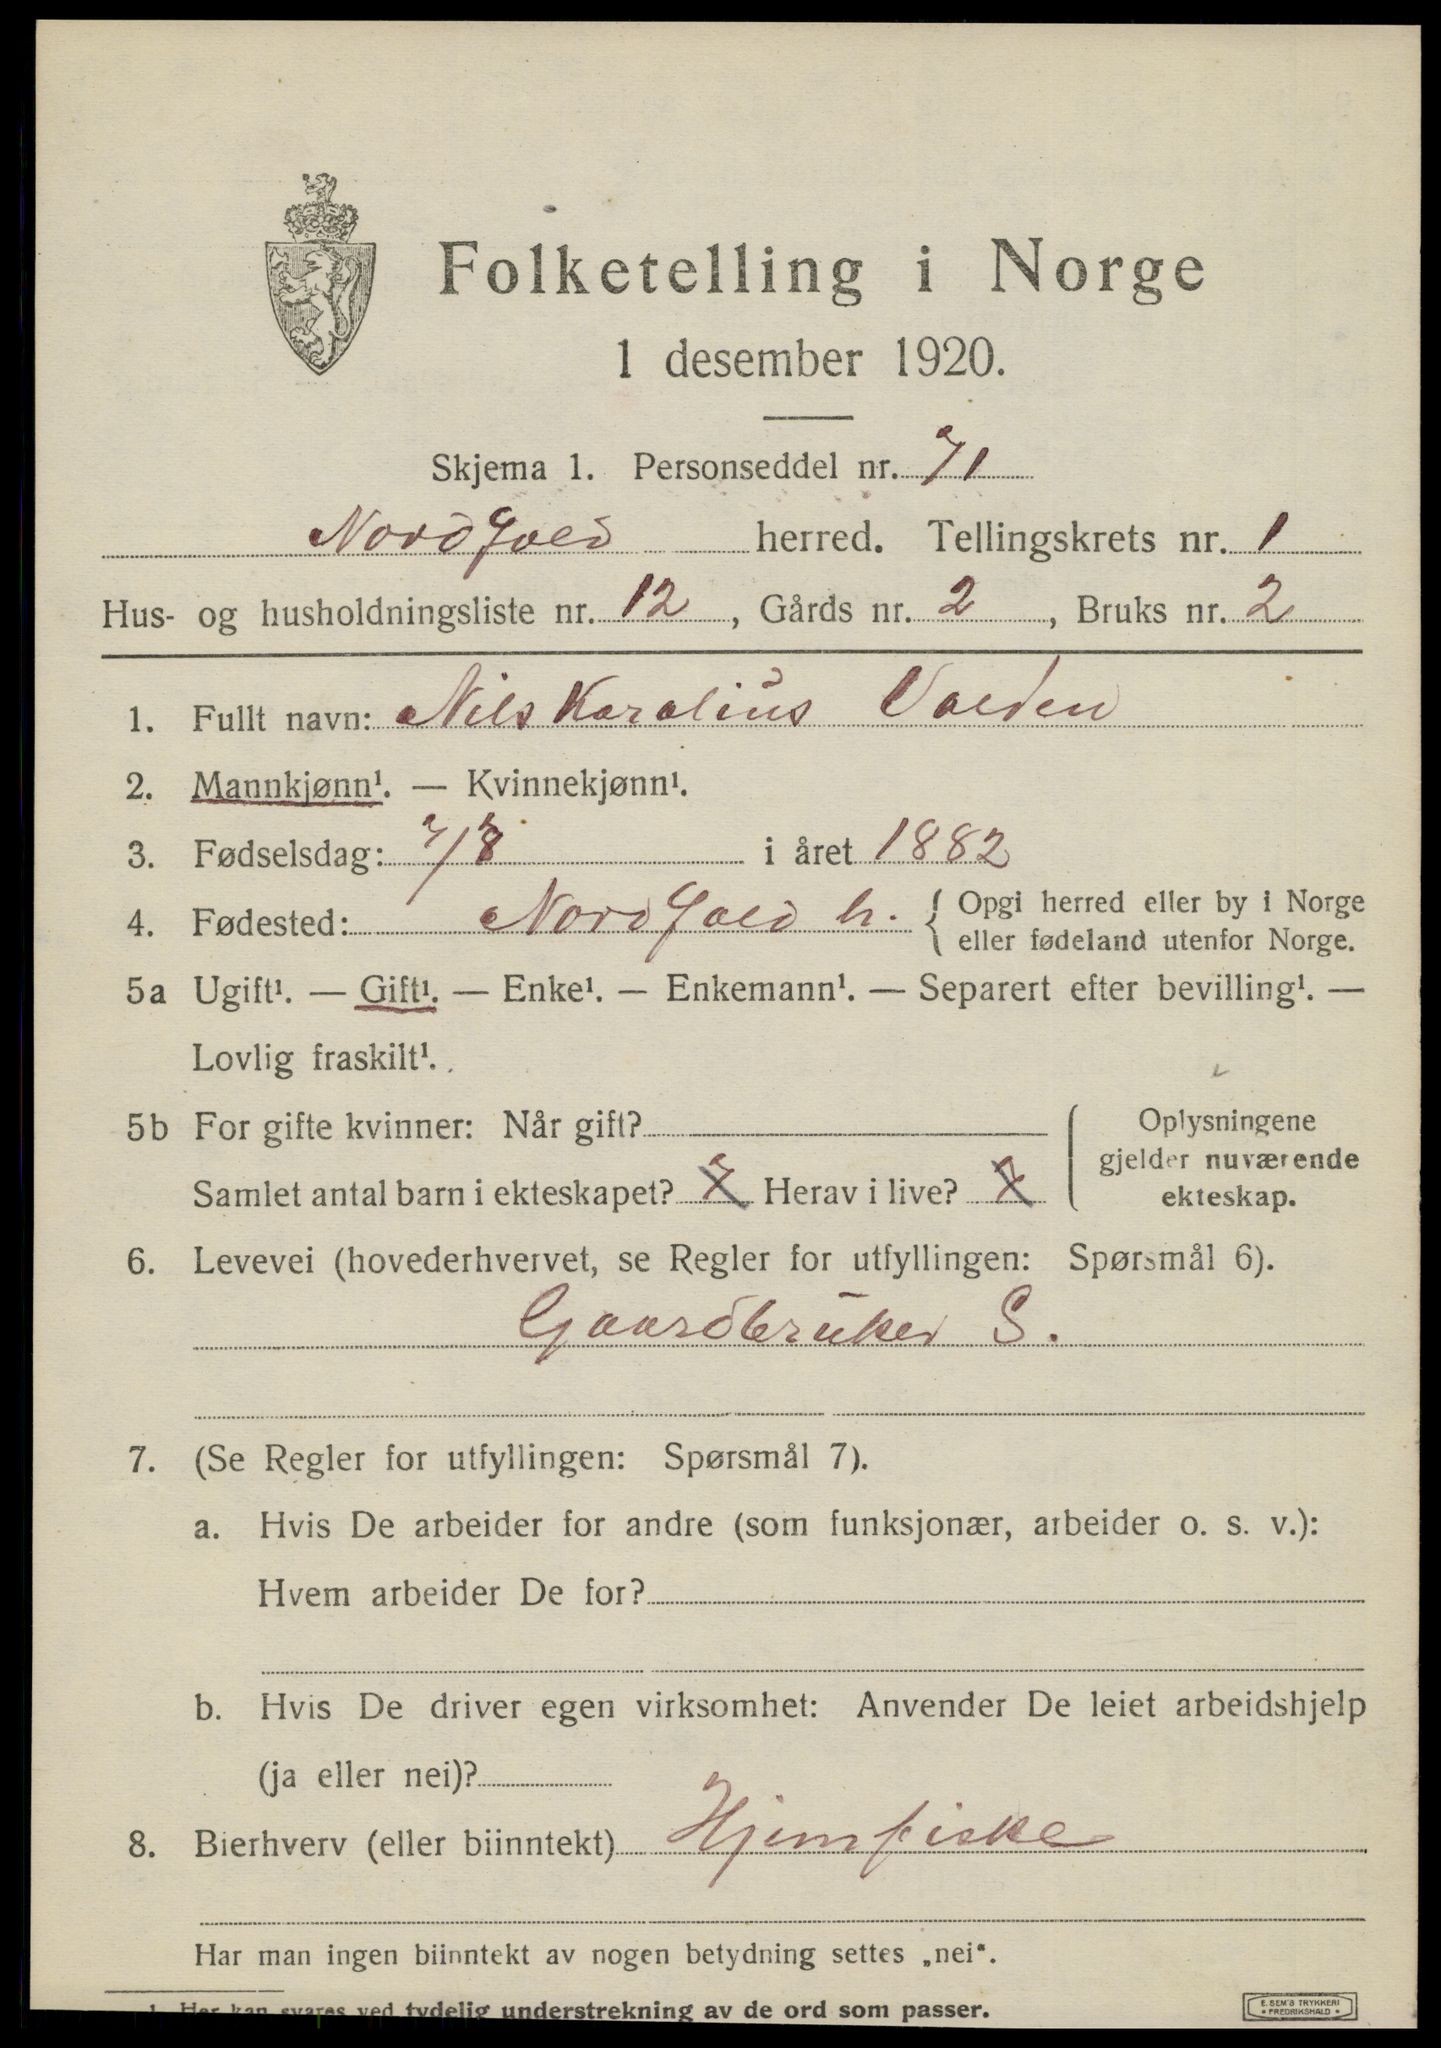 Folketelling i Norge
1 desember 1920.
Skjema 1. Personseddel nr. 71
Nordfold herred. Tellingskrets nr. 1
Hus- og husholdningsliste nr. 12, Gårds nr. 2, Bruks nr. 2
1. Fullt navn: Nils Karolius Valden
2. Mannkjønn¹. — Kvinnekjønn¹.
3. Fødselsdag: 7/8 i året 1882
4. Fødested: Nordfold h. { Opgi herred eller by i Norge
eller fødeland utenfor Norge.
5a Ugift¹. — Gift¹. — Enke¹. — Enkemann¹. — Separert efter bevilling¹. —
Lovlig fraskilt¹.
5b For gifte kvinner: Når gift?
Samlet antal barn i ekteskapet? 7 Herav i live? 7
Oplysningene
gjelder nuværende
ekteskap.
6. Levevei (hovederhvervet, se Regler for utfyllingen: Spørsmål 6).
Gaardbruker S.
7. (Se Regler for utfyllingen: Spørsmål 7).
a. Hvis De arbeider for andre (som funksjonær, arbeider o. s. v.):
Hvem arbeider De for?
b. Hvis De driver egen virksomhet: Anvender De leiet arbeidshjelp
(ja eller nei)?
8. Bierhverv (eller biinntekt) Hjemfiske
Har man ingen biinntekt av nogen betydning settes „nei“.
1. Her kan svares ved tydelig understrekning av de ord som passer.
E. SEM'S TRYKKERI
FREDRIKSHALD